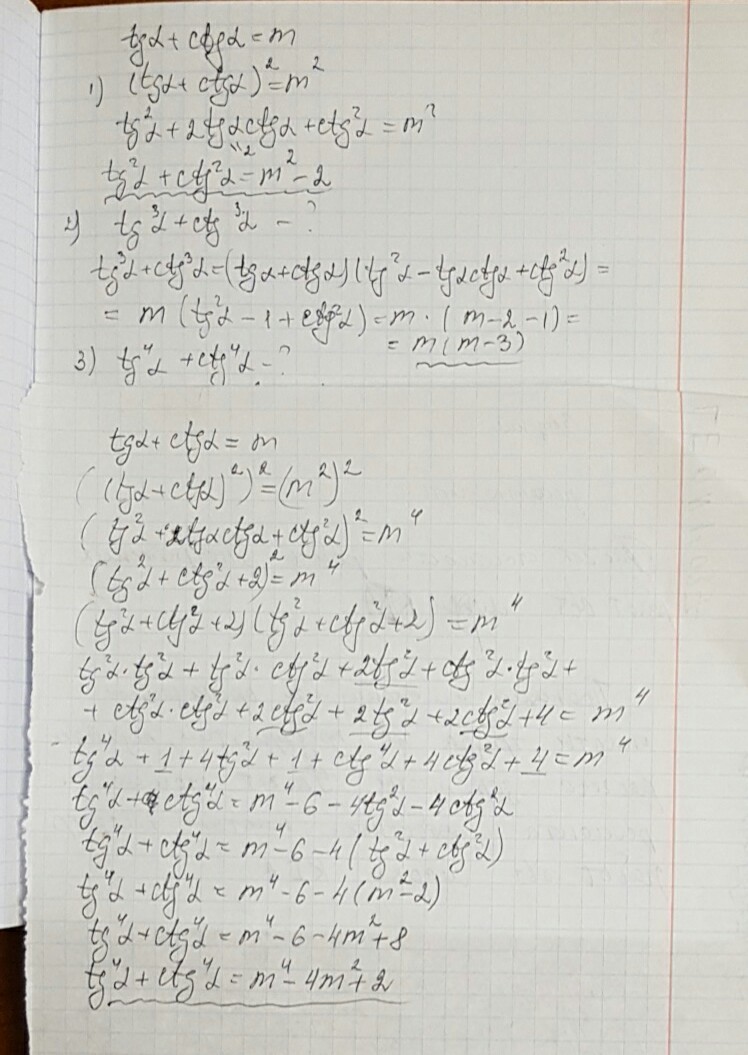 tgα + ctgα = m
1) (tgα + ctgα)² = m²
tg²α + 2tgα ctgα + ctg²α = m²
"2
tg²α + ctg²α = m² - 2
2) tg³α + ctg³α - ?
tg³α + ctg³α = (tgα + ctgα)(tg²α - tgα ctgα + ctg²α) =
= m (tg²α - 1 + ctg²α) = m · (m - 2 - 1) =
= m(m - 3)
3) tg⁴α + ctg⁴α - ?
tgα + ctgα = m
((tgα + ctgα)²)² = (m²)²
(tg²α + 2tgα ctgα + ctg²α)² = m⁴
(tg²α + ctg²α + 2)² = m⁴
(tg²α + ctg²α + 2)(tg²α + ctg²α + 2) = m⁴
tg²α · tg²α + tg²α · ctg²α + 2tg²α + ctg²α · tg²α +
+ ctg²α · ctg²α + 2ctg²α + 2tg²α + 2ctg²α + 4 = m⁴
tg⁴α + 1 + 4tg²α + 1 + ctg⁴α + 4ctg²α + 4 = m⁴
tg⁴α + ctg⁴α = m⁴ - 6 - 4tg²α - 4ctg²α
tg⁴α + ctg⁴α = m⁴ - 6 - 4(tg²α + ctg²α)
tg⁴α + ctg⁴α = m⁴ - 6 - 4(m² - 2)
tg⁴α + ctg⁴α = m⁴ - 6 - 4m² + 8
tg⁴α + ctg⁴α = m⁴ - 4m² + 2